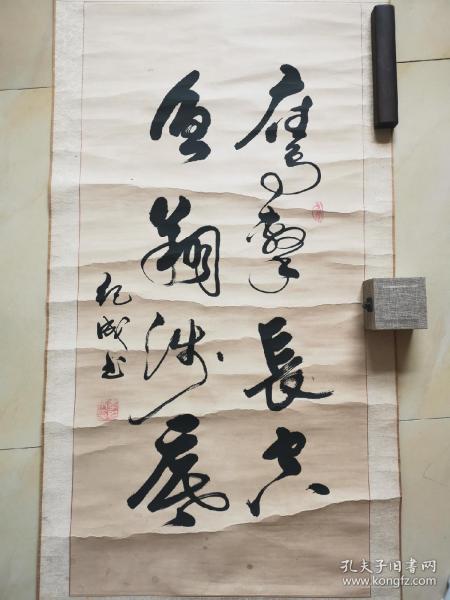 鹰击長空
魚翔浅底
纪成书
孔夫子旧书网
www.kongfz.com